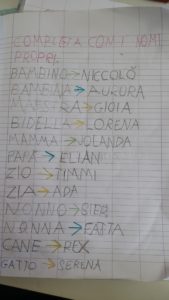 COMPLETA CON I NOMI
PROPRI.
BAMBINO → NICCOLÒ
BAMBINA → AURORA
MAESTRA → GIOIA
BIDELLA → LORENA
MAMMA → JOLANDA
PAPÀ → ELIAN
ZIO → TIMMI
ZIA → ADA
NONNO →
NONNA →
CANE → REX
GATTO → SERENA